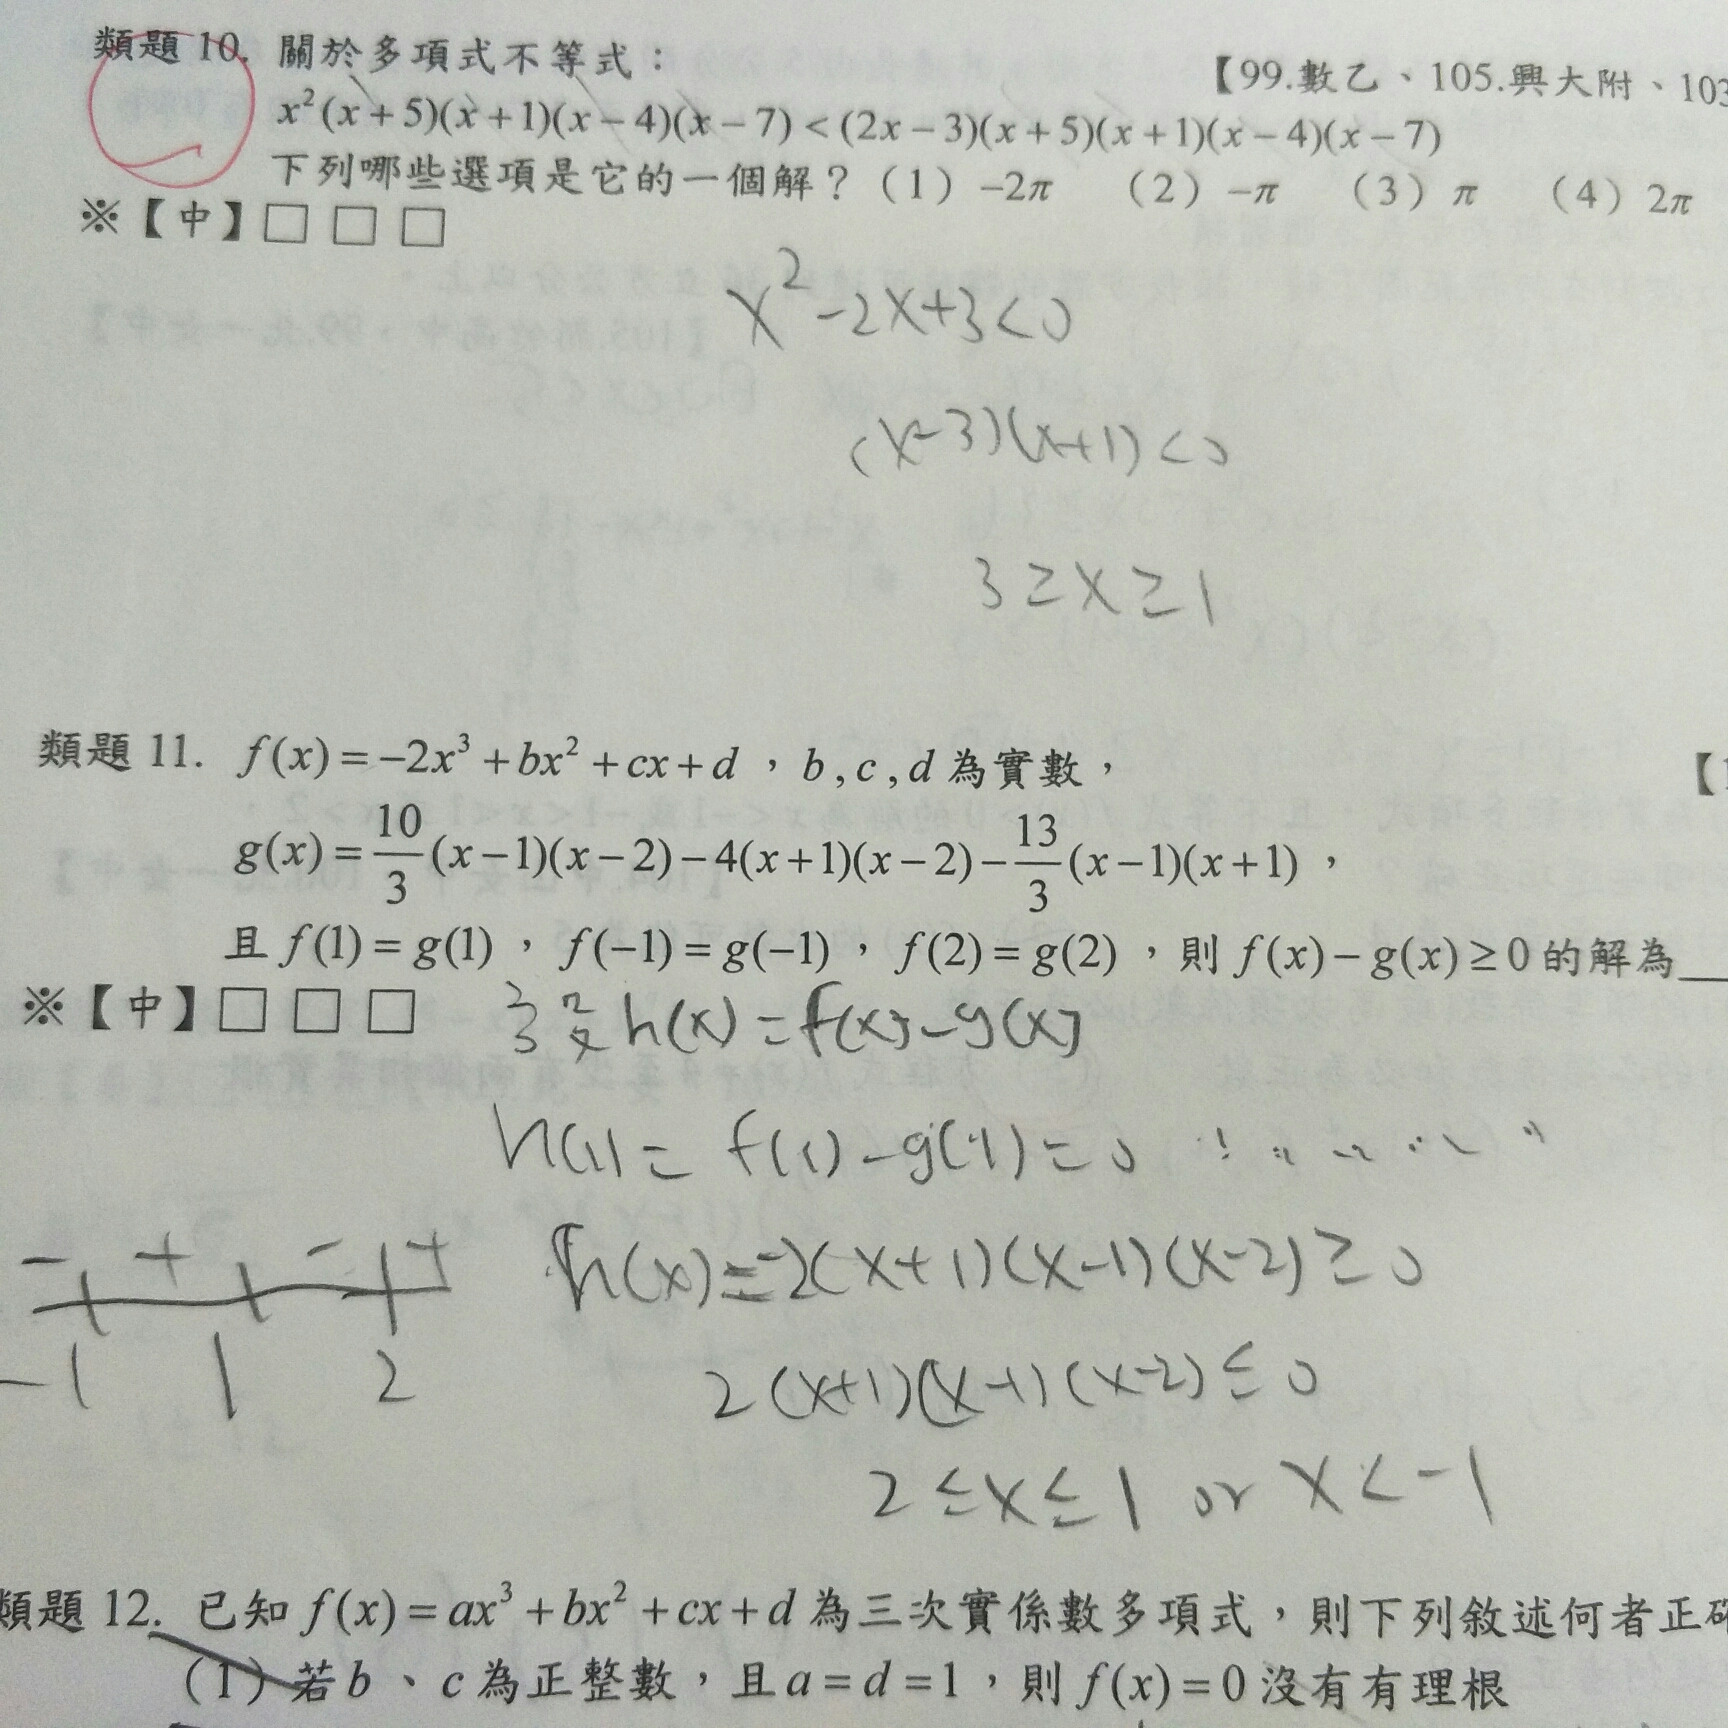 類題 10. 關於多項式不等式：
【99.數乙、105.興大附、103
x²(x+5)(x+1)(x-4)(x-7)<(2x-3)(x+5)(x+1)(x-4)(x-7)
下列哪些選項是它的一個解？（1）-2π （2）-π （3）π （4）2π
※【中】□ □ □
x²-2x+3<0
(x-3)(x+1)<0
3≥x≥1
類題 11. f(x)=-2x³+bx²+cx+d，b,c,d 為實數，
【1
g(x)=10/3(x-1)(x-2)-4(x+1)(x-2)-13/3(x-1)(x+1)，
且 f(1)=g(1)，f(-1)=g(-1)，f(2)=g(2)，則 f(x)-g(x)≥0 的解為__
※【中】□ □ □
h(x)=f(x)-g(x)
h(1)=f(1)-g(1)=0
- + - +
h(x)=-2(x+1)(x-1)(x-2)≥0
-1 1 2
2(x+1)(x-1)(x-2)≤0
2≤x≤1 or x<-1
類題 12. 已知 f(x)=ax³+bx²+cx+d 為三次實係數多項式，則下列敘述何者正確
（1）若 b、c 為正整數，且 a=d=1，則 f(x)=0 沒有有理根